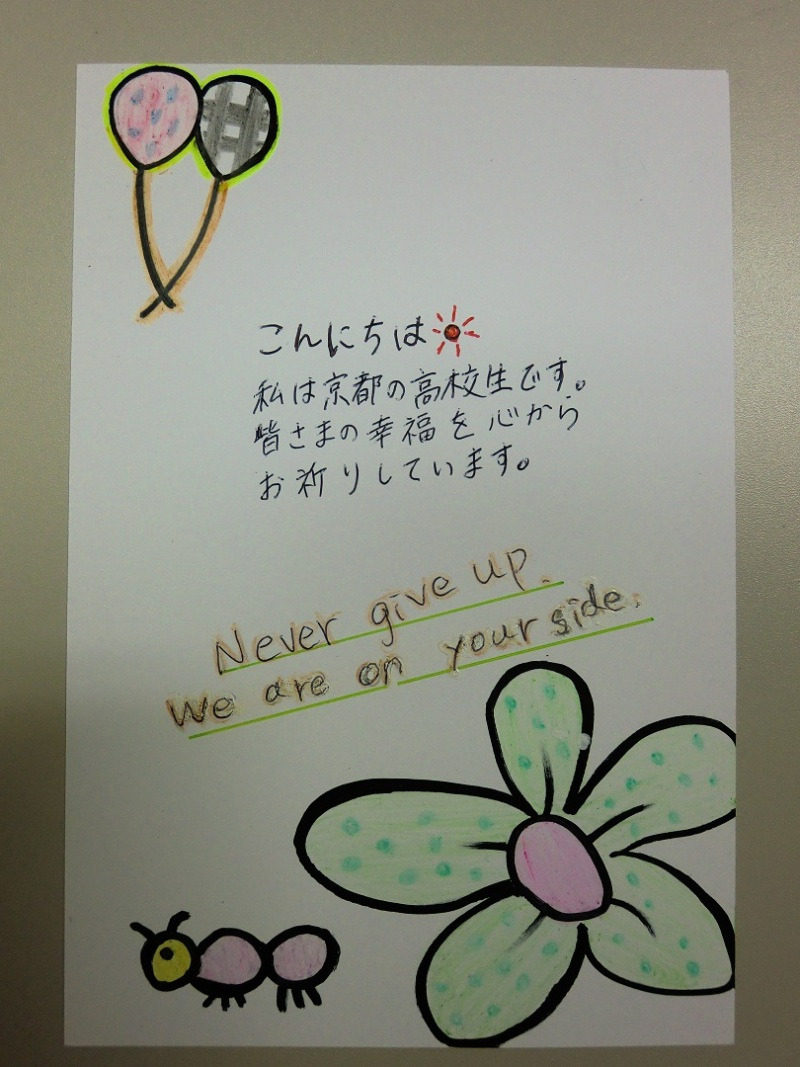 こんにちは
私は京都の高校生です。
皆さまの幸福を心から
お祈りしています。
Never give up.
We are on your side.